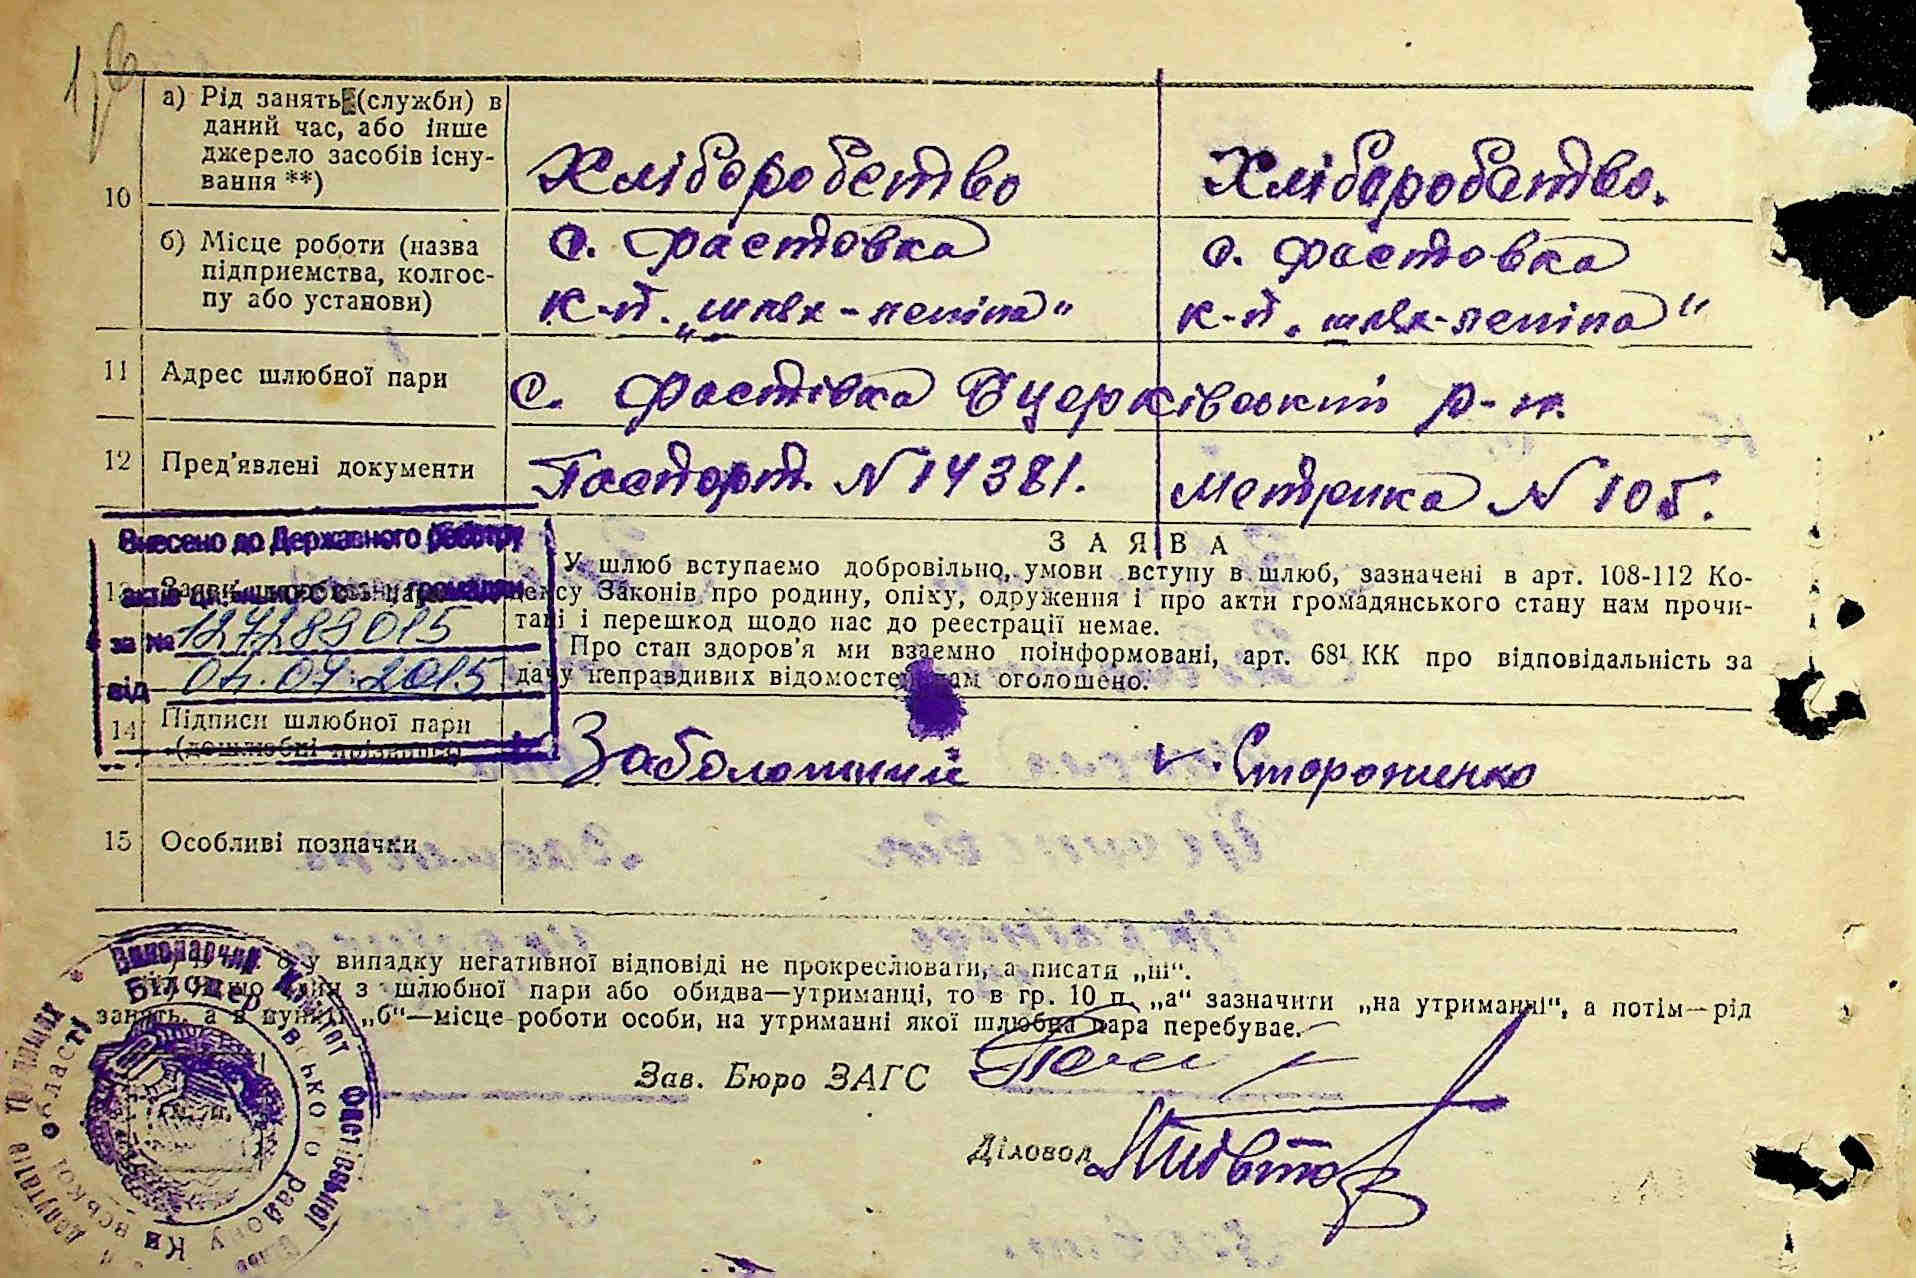 10
а) Рід занять (служби) в
даний час, або інше
джерело засобів існу-
вання **)
Хліборобство
Хліборобство.
б) Місце роботи (назва
підприємства, колгос-
пу або установи)
с. Фастовка
к-п. „шлях-леніна"
с. Фастовка
к-п. „шлях-леніна"
11 Адрес шлюбної пари
с. Фастівка Бцерківський р-н.
12 Пред'явлені документи
Паспорт. N 14381.
Метрика N 105.
Внесено до Державного реєстру
актів цивільного стану громадян
за № 127289015
від 04.07.2015
13
ЗАЯВА
У шлюб вступаємо добровільно, умови вступу в шлюб, зазначені в арт. 108-112 Ко-
дексу Законів про родину, опіку, одруження і про акти громадянського стану нам прочи-
тані і перешкод щодо нас до реєстрації немає.
Про стан здоров'я ми взаємно поінформовані, арт. 68¹ КК про відповідальність за
дачу неправдивих відомостей нам оголошено.
14 Підписи шлюбної пари
(дошлюбні прізвища)
Заболотний
Стороженко
15 Особливі позначки
у випадку негативної відповіді не прокреслювати, а писати „ні".
один з шлюбної пари або обидва—утриманці, то в гр. 10 п. „а" зазначити „на утриманні", а потім—рід
занять, а в пункті „б"—місце роботи особи, на утриманні якої шлюбна пара перебуває.
Зав. Бюро ЗАГС
Діловод
Виконавчий Комітет Фастівської
Білоцерківського району
Київської області
депутатів трудящих